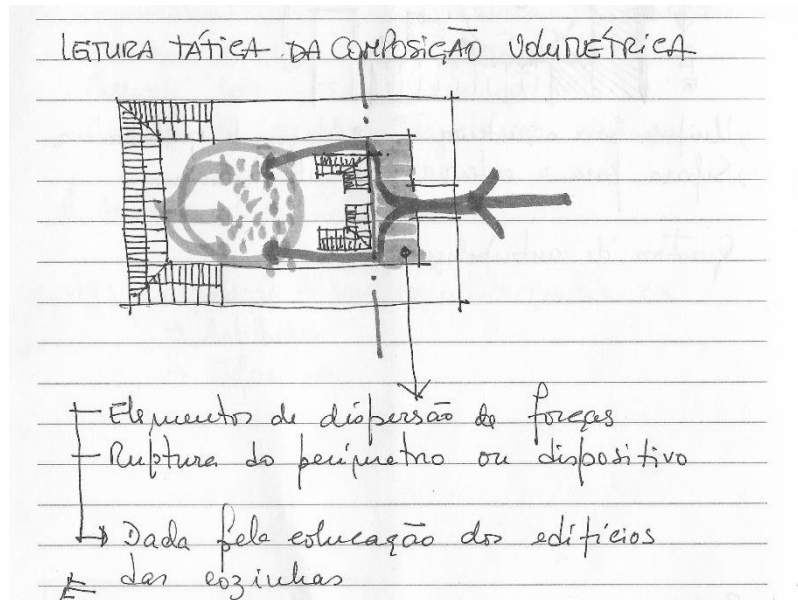 LEITURA TÁTICA DA COMPOSIÇÃO VOLUMÉTRICA
Elementos de dispersão de forças
Ruptura do perímetro ou dispositivo
Dada pela colocação dos edifícios
das cozinhas